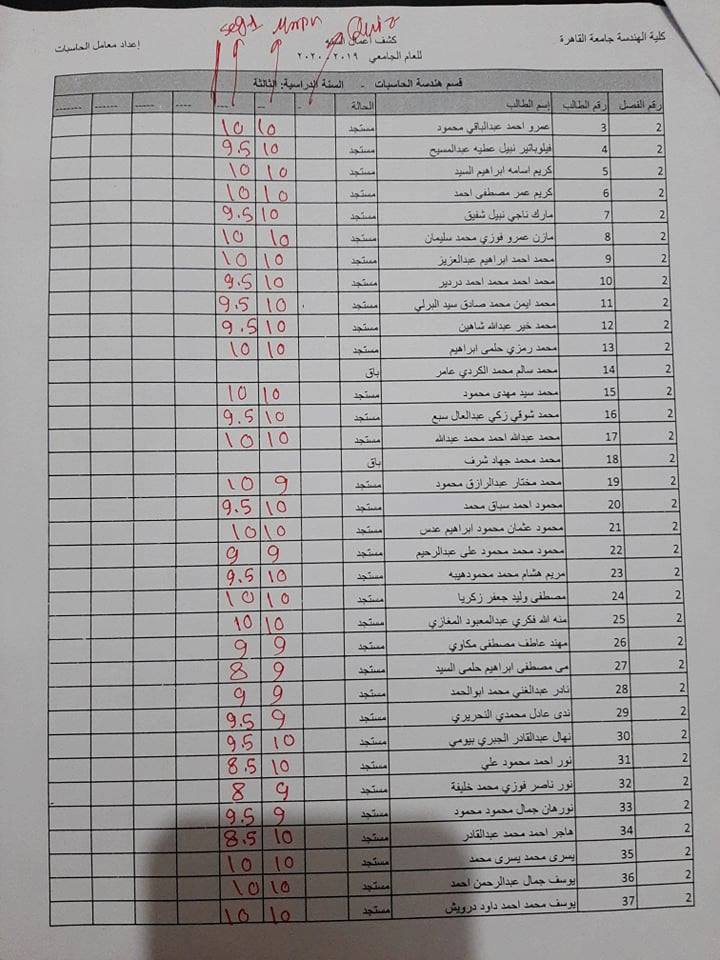 كلية الهندسة جامعة القاهرة
كشف أعمال السنة
إعداد معامل الحاسبات
للعام الجامعي ٢٠١٩ - ٢٠٢٠
قسم هندسة الحاسبات - السنة الدراسية: الثالثة
رقم الفصل رقم الطالب إسم الطالب الحالة
2 3 عمرو احمد عبدالباقي محمود مستجد 10 10
2 4 فيلوباتير نبيل عطيه عبدالمسيح مستجد 10 9.5
2 5 كريم اسامه ابراهيم السيد مستجد 10 10
2 6 كريم عمر مصطفى احمد مستجد 10 10
2 7 مارك ناجي نبيل شفيق مستجد 10 9.5
2 8 مازن عمرو فوزي محمد سليمان مستجد 10 10
2 9 محمد احمد ابراهيم عبدالعزيز مستجد 10 10
2 10 محمد احمد محمد احمد دردير مستجد 10 9.5
2 11 محمد ايمن محمد صادق سيد البرلي مستجد 10 9.5
2 12 محمد خير عبدالله شاهين مستجد 10 9.5
2 13 محمد رمزي حلمى ابراهيم مستجد 10 10
2 14 محمد سالم محمد الكردي عامر باق
2 15 محمد سيد مهدى محمود مستجد 10 10
2 16 محمد شوقي زكي عبدالعال سبع مستجد 10 9.5
2 17 محمد عبدالله احمد محمد عبدالله مستجد 10 10
2 18 محمد محمد جهاد شرف باق
2 19 محمد مختار عبدالرازق محمود مستجد 9 10
2 20 محمود احمد سباق محمد مستجد 10 9.5
2 21 محمود عثمان محمود ابراهيم عدس مستجد 10 10
2 22 محمود محمد محمود على عبدالرحيم مستجد 9 9
2 23 مريم هشام محمد محمودهيبه مستجد 10 9.5
2 24 مصطفى وليد جعفر زكريا مستجد 10 10
2 25 منه الله فكري عبدالمعبود المغازي مستجد 10 10
2 26 مهند عاطف مصطفى مكاوي مستجد 9 9
2 27 مى مصطفى ابراهيم حلمى السيد مستجد 9 8
2 28 نادر عبدالغني محمد ابوالحمد مستجد 9 9
2 29 ندى عادل محمدي النحريري مستجد 9 9.5
2 30 نهال عبدالقادر الجبري بيومي مستجد 10 9.5
2 31 نور احمد محمود علي مستجد 10 8.5
2 32 نور ناصر فوزي محمد خليفة مستجد 9 8
2 33 نورهان جمال محمود محمود مستجد 9 9.5
2 34 هاجر احمد محمد عبدالقادر مستجد 10 8.5
2 35 يسرى محمد يسرى محمد مستجد 10 10
2 36 يوسف جمال عبدالرحمن احمد مستجد 10 10
2 37 يوسف محمد احمد داود درويش مستجد 10 10